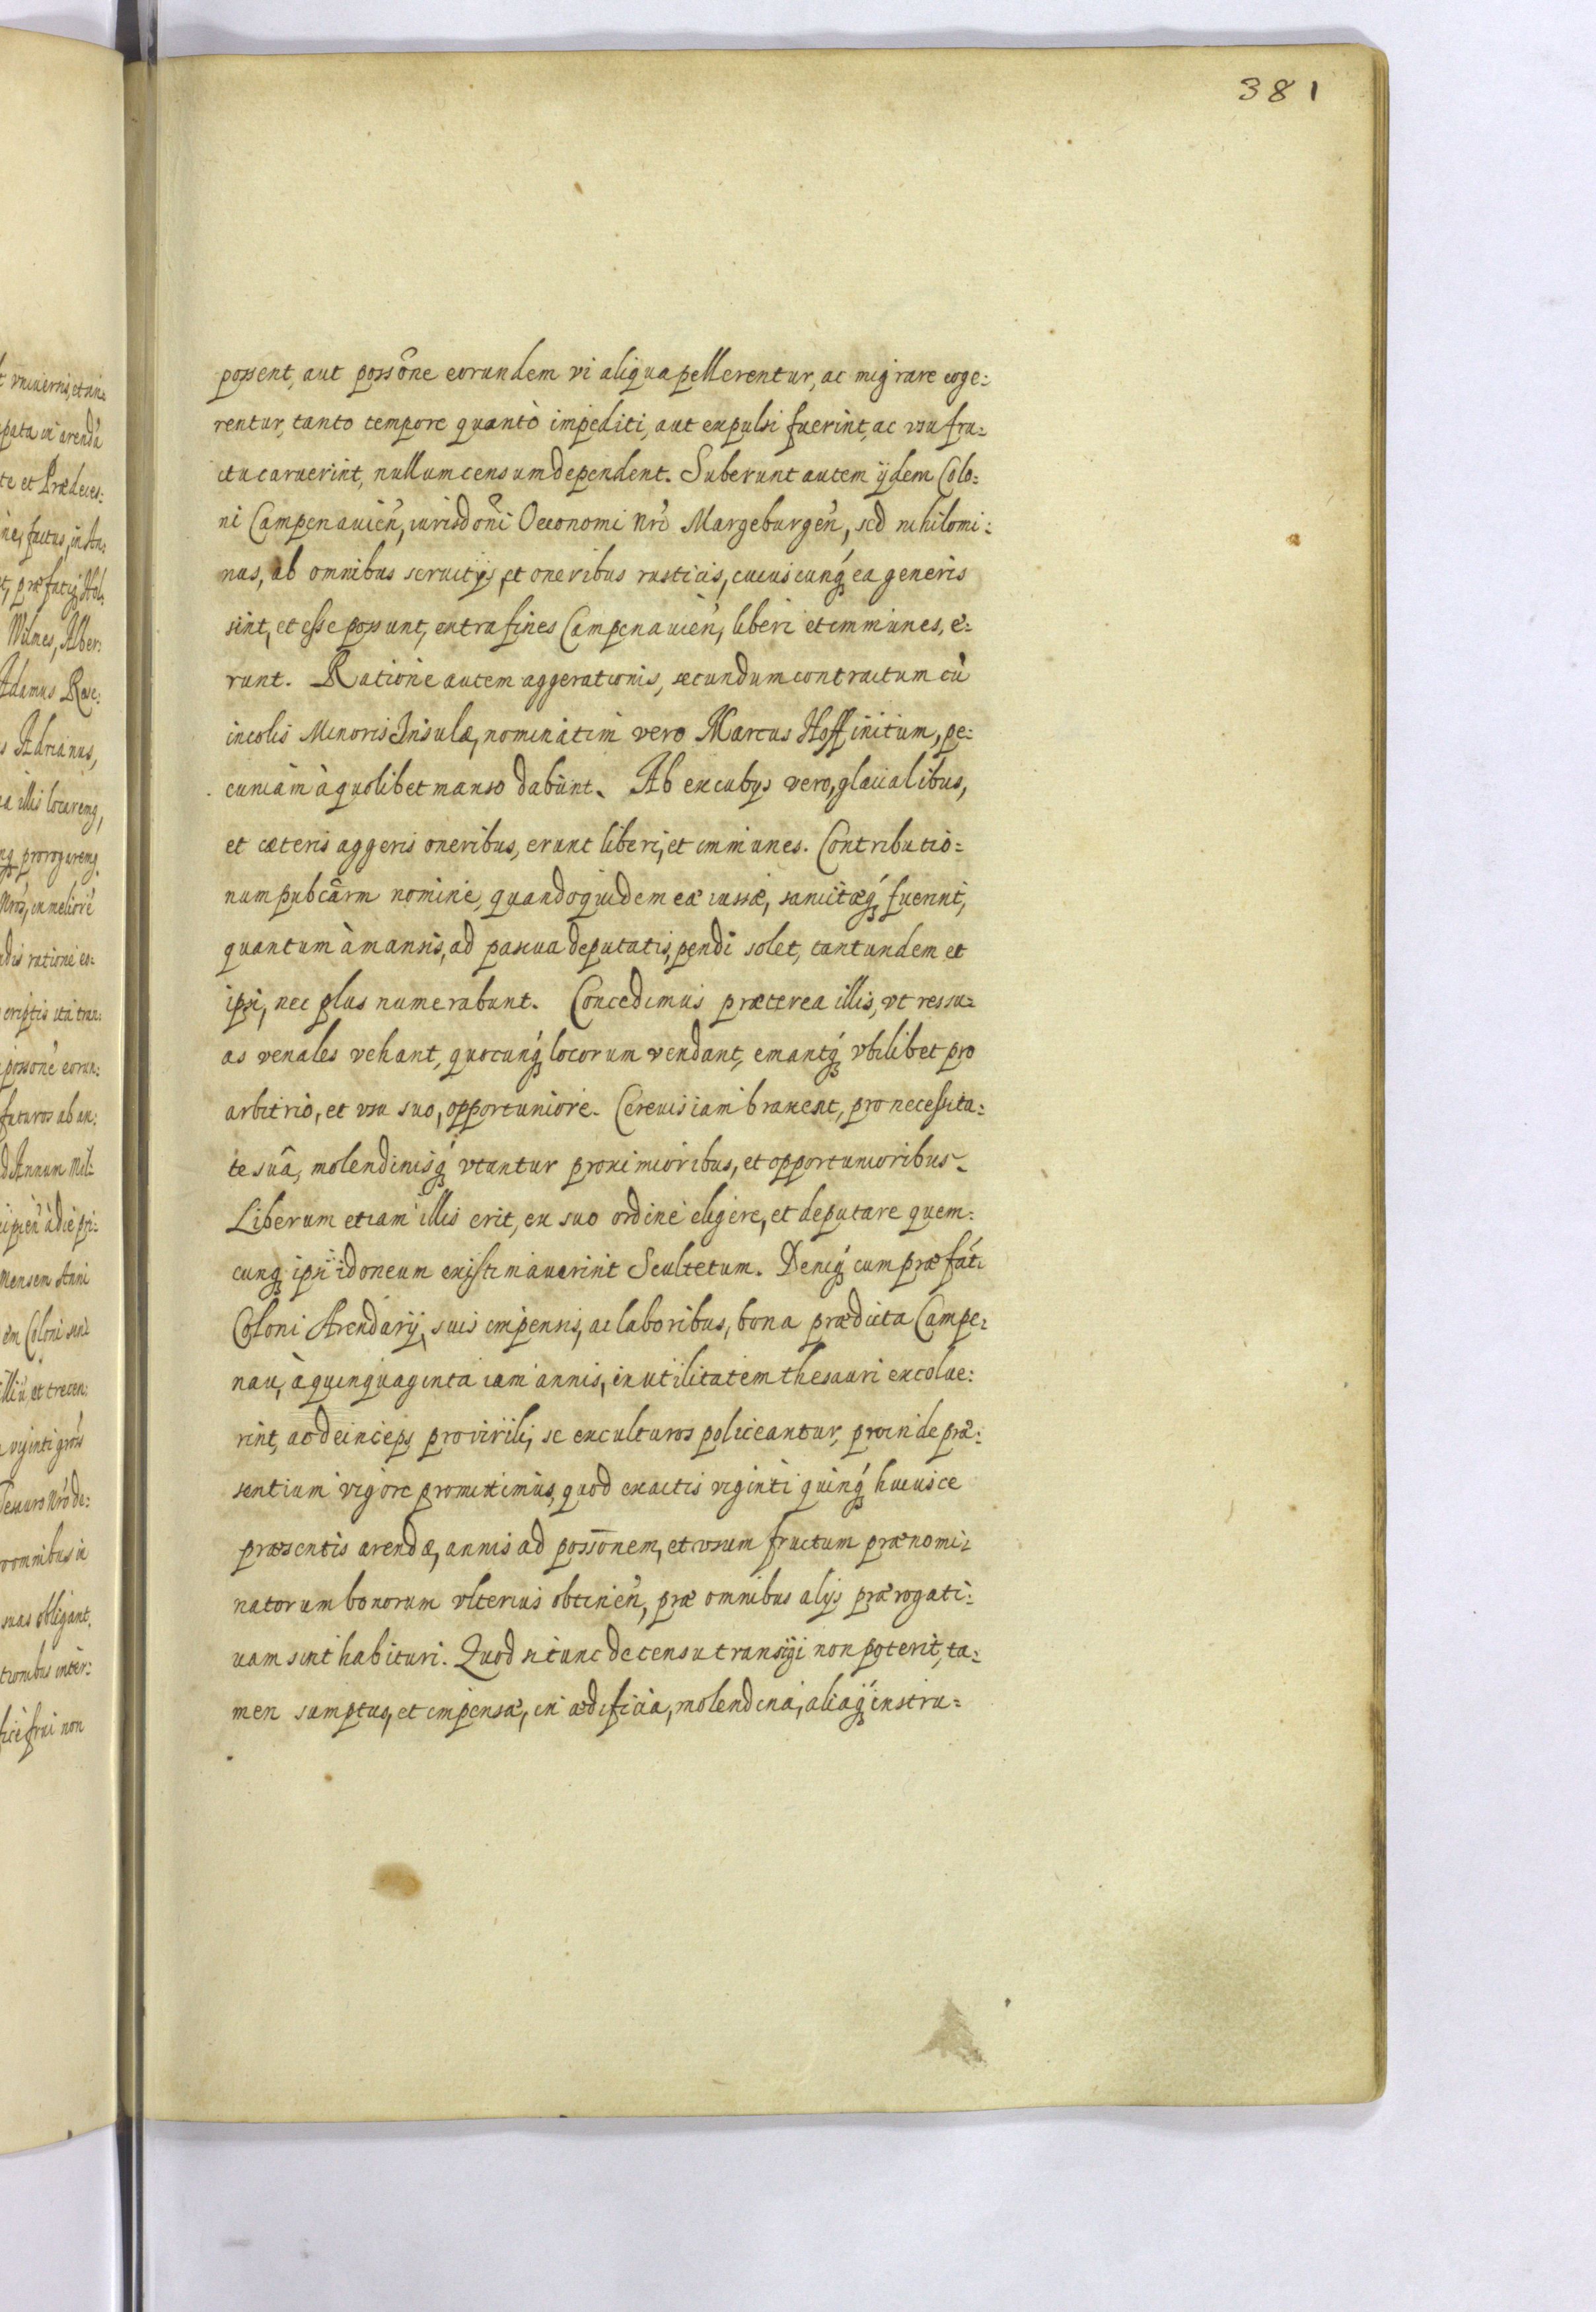 381
possent, aut possõne eorundem vi aliqua pellerentur, ac migrare coge:
rentur, tanto tempore quantò impediti, aut expulsi fuerint, ac vsu fru:
ctu caruerint, nullum censum dependent. Suberunt autem ijdem Colo:
ni Campenauien̄, iurisdoñi Oeconomi nr̃i Margeburgen̄, sed nihilomi:
nus, ab omnibus seruitijs, et oneribus rusticis, cuiuscunq́ ea generis
sint, et esse possunt, extra fines Campenauien̄, liberi et immunes, e:
runt. Ratione autem aggerationis, secundum contractum cū
incolis Minoris Insulæ, nominatim vero Marcus Hoff initum, pe:
cuniam à quolibet manso dabunt. Ab excubijs vero, glacialibus,
et cæteris aggeris oneribus, erunt liberi, et immunes. Contributio:
num pubcãrm nomine, quandoquidem eæ iussæ, sancitæq́ fuerint,
quantum à mansis, ad pascua deputatis, pendi solet, tantundem et
ipsi, nec plus numerabunt. Concedimus præterea illis, vt res su:
as venales vehant, quocunq́ locorum vendant, emantq́ vbilibet pro
arbitrio, et vsu suo, opportuniore. Cereuisiam braxent, pro necessita:
te suâ, molendinisq́ vtantur proximioribus, et opportunioribus.
Liberum etiam illis erit, ex suo ordine eligere, et deputare quem:
cunq ipsi idoneum existimauerint Scultetum. Deniq́ cum præfáti
Coloni Arendarij, suis impensis, ac laboribus, bona prædicta Campe:
nau, à quinquaginta iam annis, in utilitatem thesauri excolue:
rint, ac deinceps pro virili, se exculturos policeantur, proinde præ:
sentium vigore promittimus, quod exactis viginti quinq́ huiusce
præsentis arendæ, annis ad possōnem, et vsum fructum prænomi:
natorum bonorum vlterius obtinen̄, præ omnibus alijs prærogati:
uam sint habituri. Quod si tunc de censu transigi non poterit, ta:
men sumptus, et impensæ, in ædificia, molendina, aliaq́ instru: